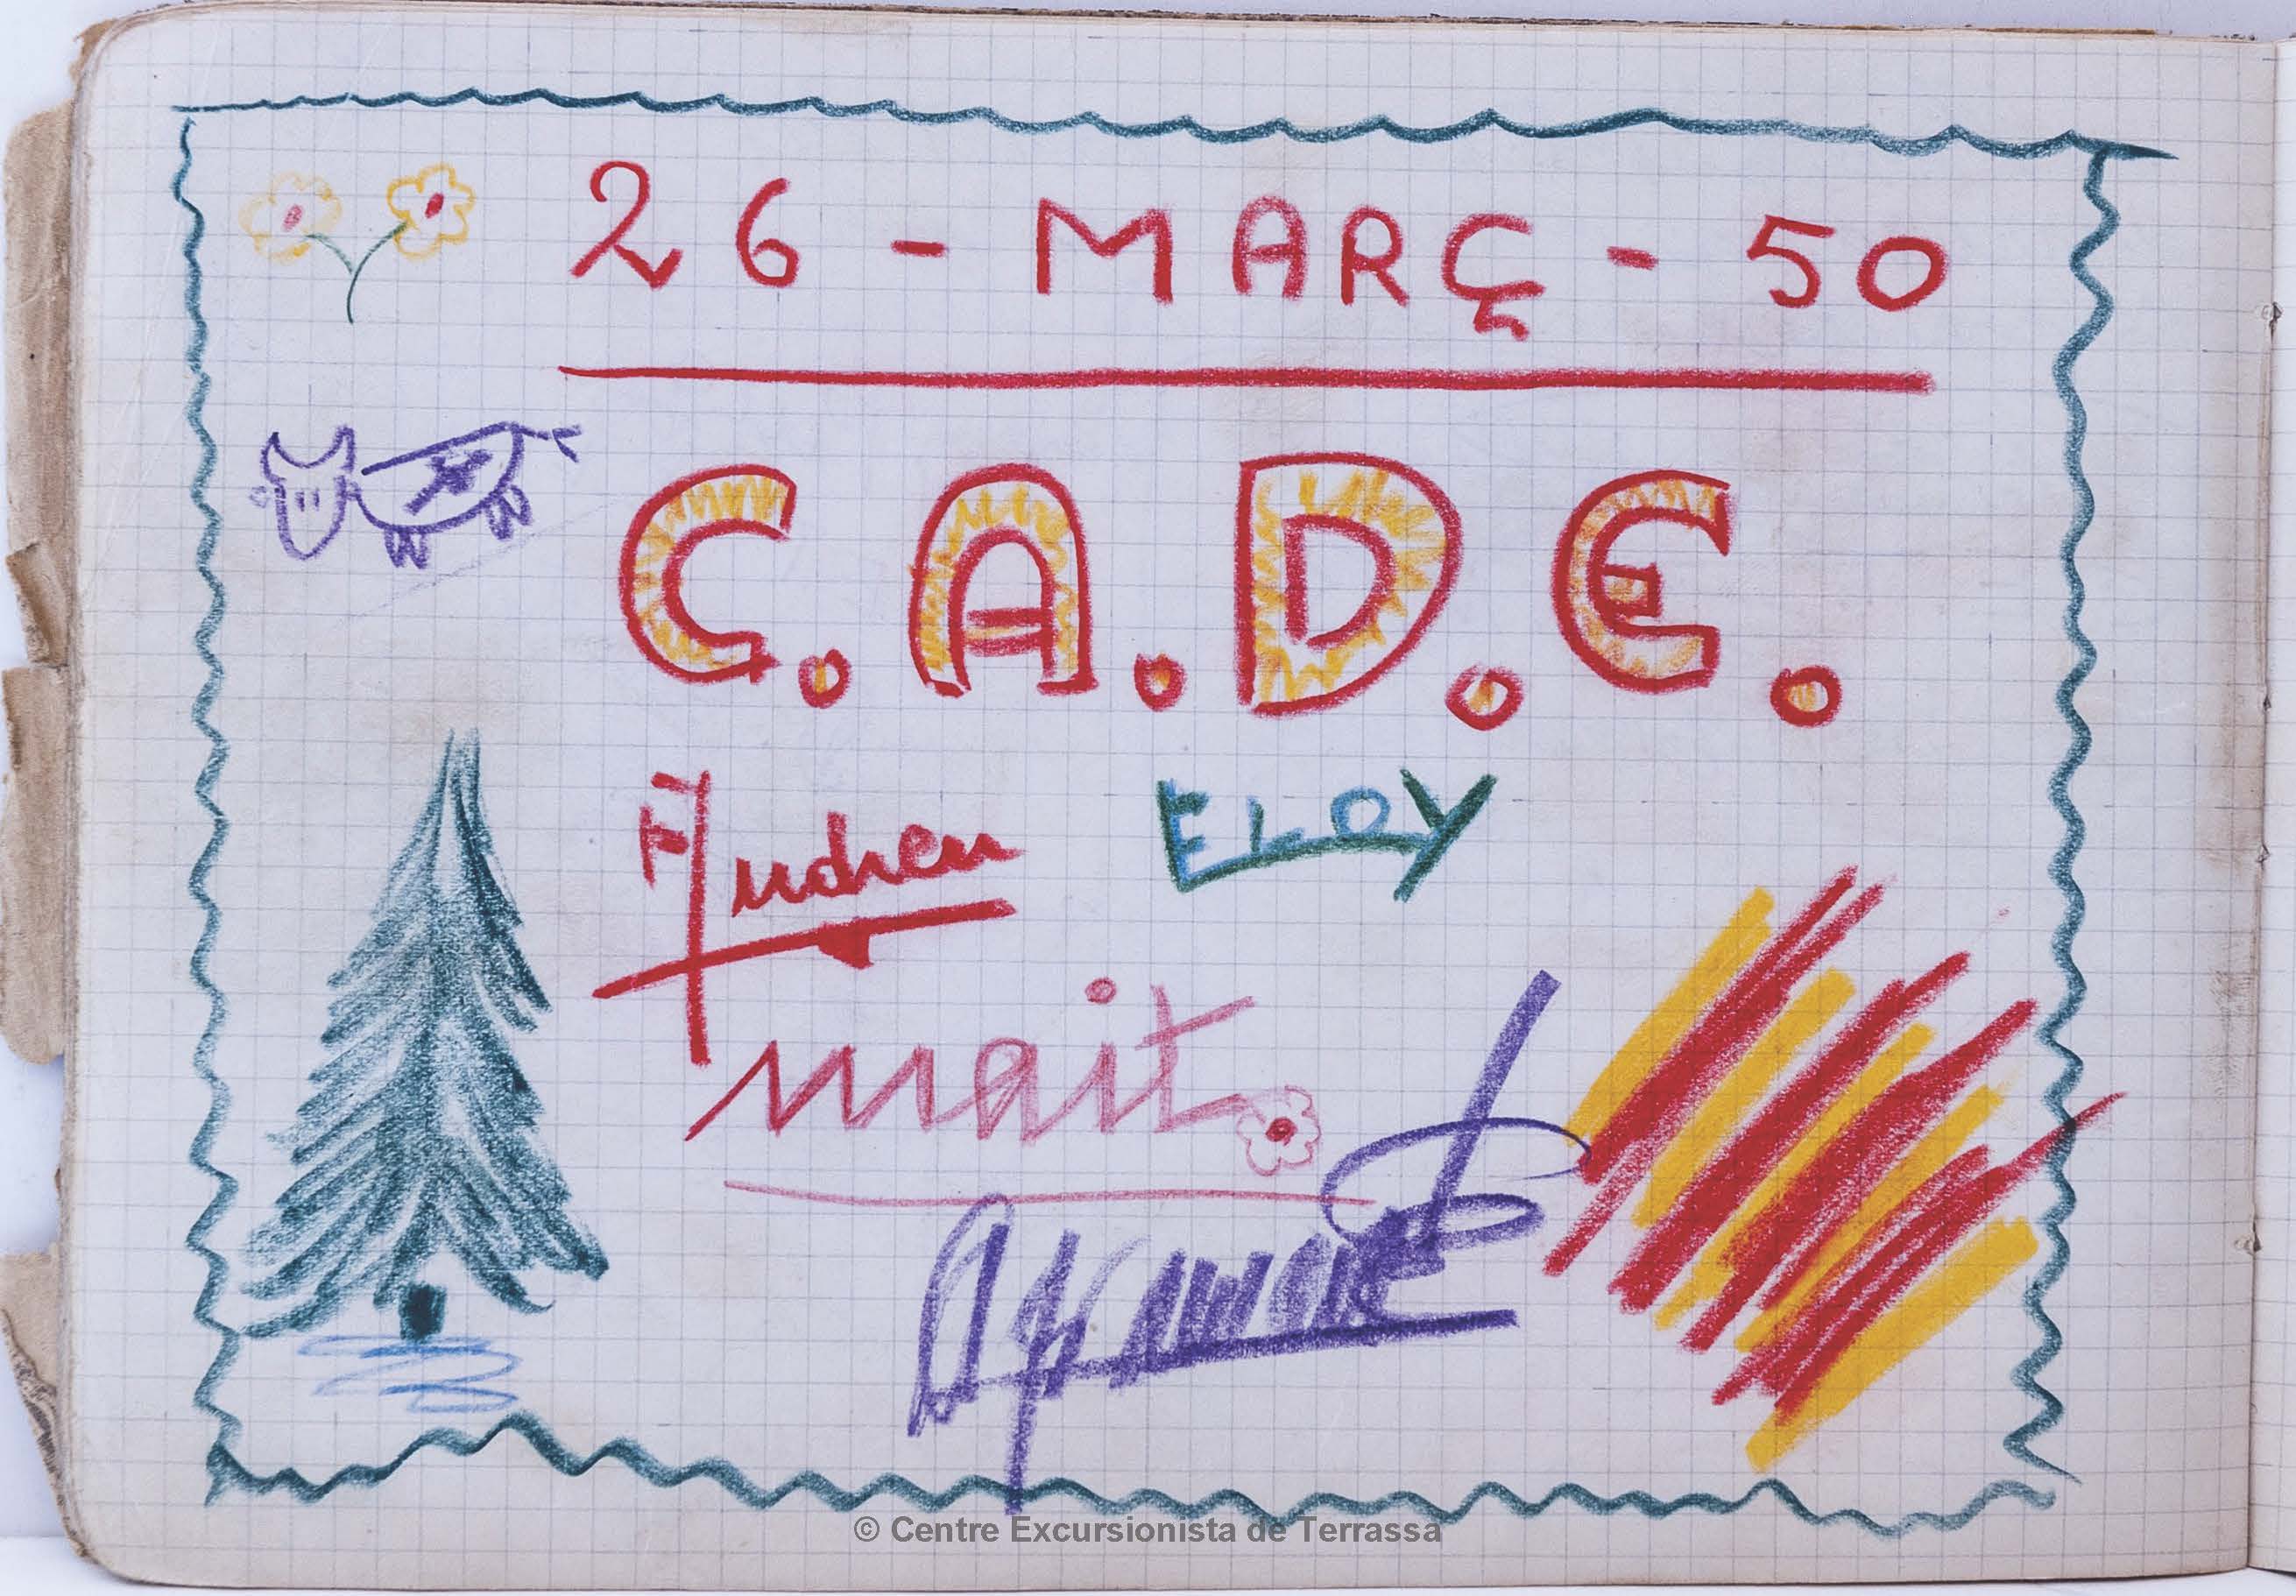 26 - MARÇ - 50
C.A.D.E.
Andreu
ELOY
mait
© Centre Excursionista de Terrassa